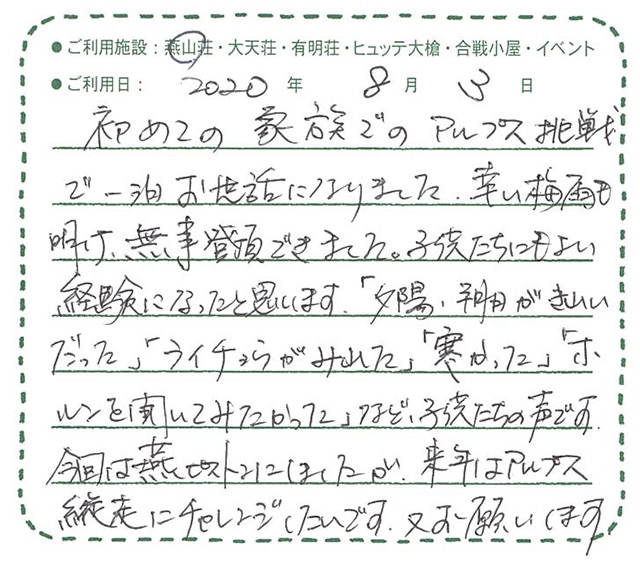 ●ご利用施設：燕山荘・大天荘・有明荘・ヒュッテ大槍・合戦小屋・イベント
●ご利用日： 2020 年 8 月 3 日
初めての家族でのアルプス挑戦
で一泊お世話になりました。幸い梅雨も
明け、無事登頂できました。子供たちにもよい
経験になったと思います。「夕陽、朝日がきれい
だった」「ライチョウがみれた」「寒かった」「ホ
ルンを聞いてみたかった」など、子供たちの声です。
今回は燕ピストンにしましたが、来年はアルプス
縦走にチャレンジしたいです。又お願いします。